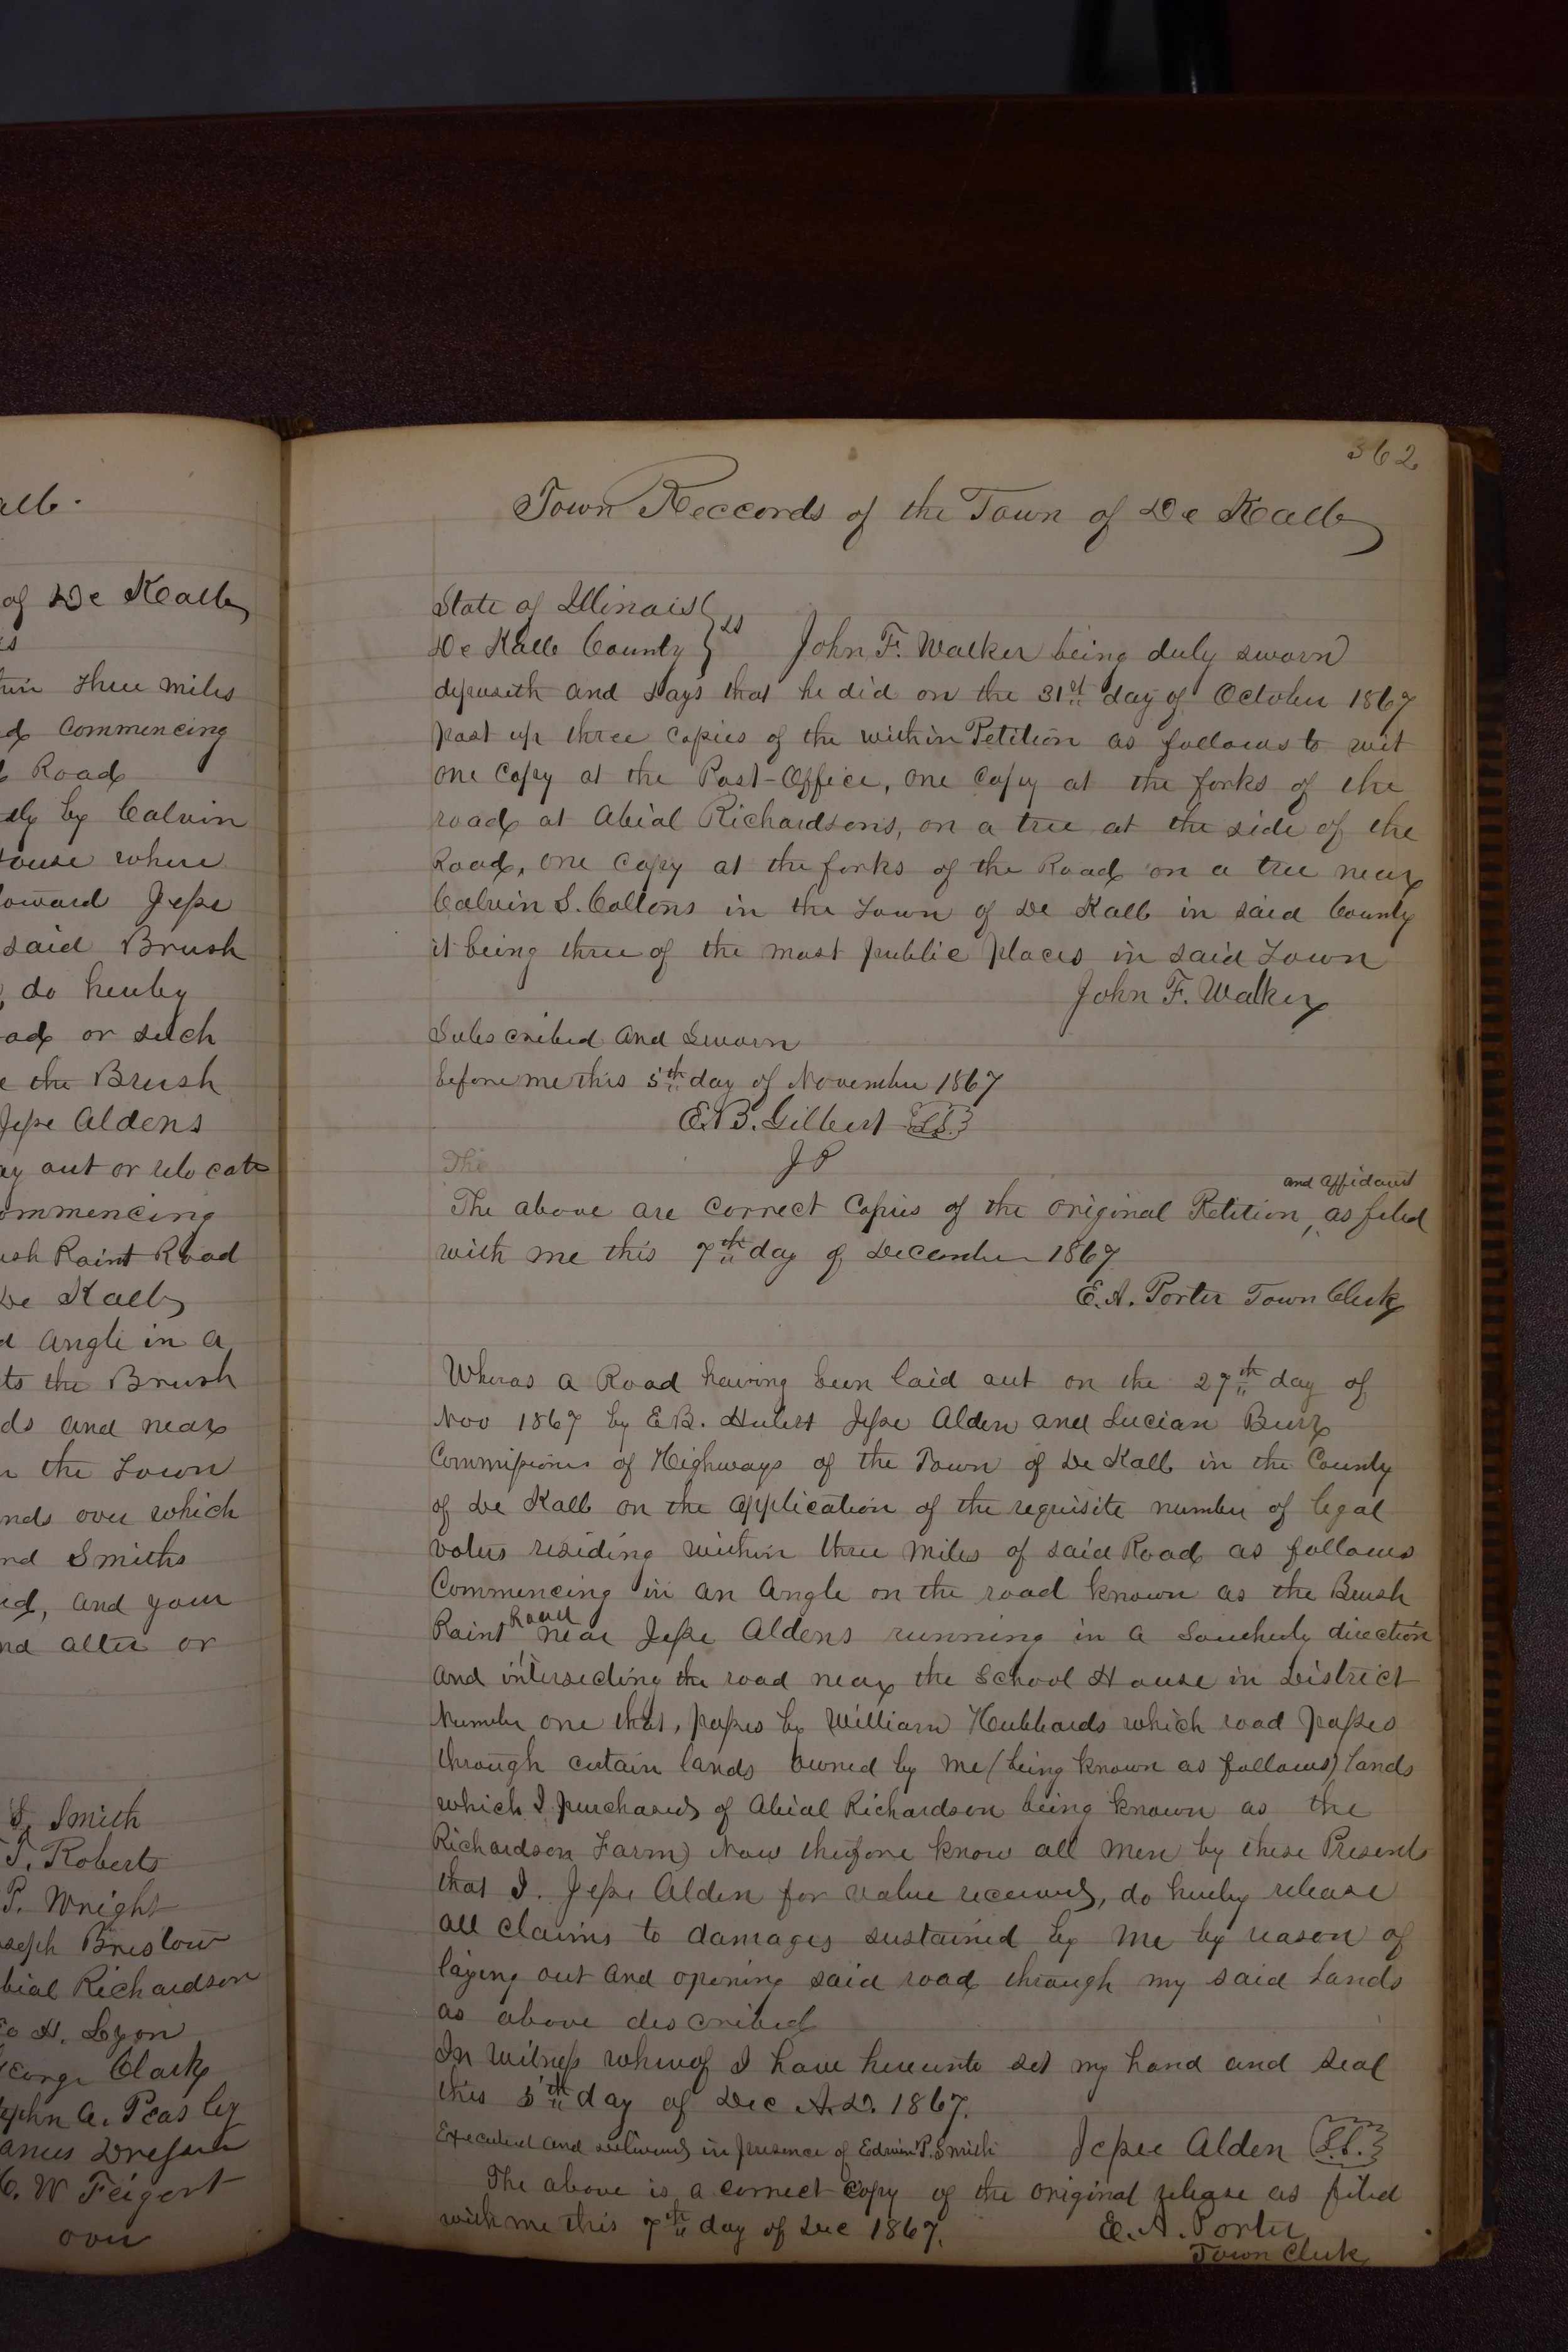 alb.
of De Kalb
three miles
commencing
Road
by Calvin
where
toward Jesse
said Brush
do hereby
or such
the Brush
Jesse Aldens
out or relocate
commencing
Point Road
De Kalb
Angle in a
the Brush
and near
the Town
over which
Smiths
and your
alter or
S. Smith
T. Roberts
P. Wright
Bristow
Richardson
H. Lyon
Clark
A. Peasley
C. W Feigert
over
362
Town Reccords of the Town of De Kalb
State of Illinois } ss
De Kalb County } John F. Walker being duly sworn
deposeth and says that he did on the 31st day of October 1867
post up three copies of the within Petition as follows to wit
one copy at the Post-Office, one copy at the forks of the
road at Abial Richardsons, on a tree at the side of the
Road, one copy at the forks of the Road on a tree near
Calvin S. Coltons in the Town of De Kalb in said County
it being three of the most public places in said Town
John F. Walker
Subscribed and Sworn
before me this 5th day of November 1867
E.B. Gilbert L.S.
The J P
and affidavit
The above are correct copies of the original Petition, as filed
with me this 7th day of December 1867
E. A. Porter Town Clerk
Wheras a Road having been laid out on the 27th day of
Nov 1867 by E B. Hulert Jesse Alden and Lucian Burr
Commissioners of Highways of the Town of De Kalb in the County
of De Kalb on the application of the requisite number of legal
voters residing within three miles of said Road as follows
Commencing in an Angle on the road known as the Brush
Point Road near Jesse Aldens running in a Southerly direction
and intersecting the road near the School House in District
Number one that, passes by William Hubbards which road passes
through certain lands owned by me (being known as follows) lands
which I purchased of Abial Richardson being known as the
Richardson Farm) Now therefore know all men by these Presents
that I. Jesse Alden for value received, do hereby release
all claims to damages sustained by me by reason of
laying out and opening said road through my said lands
as above described
In witness whereof I have hereunto set my hand and seal
this 5th day of Dec A.D. 1867.
Executed and delivered in presence of Edwin P. Smith Jessee Alden L.S.
The above is a correct copy of the original release as filed
with me this 7th day of Dec 1867. E. A. Porter
Town Clerk